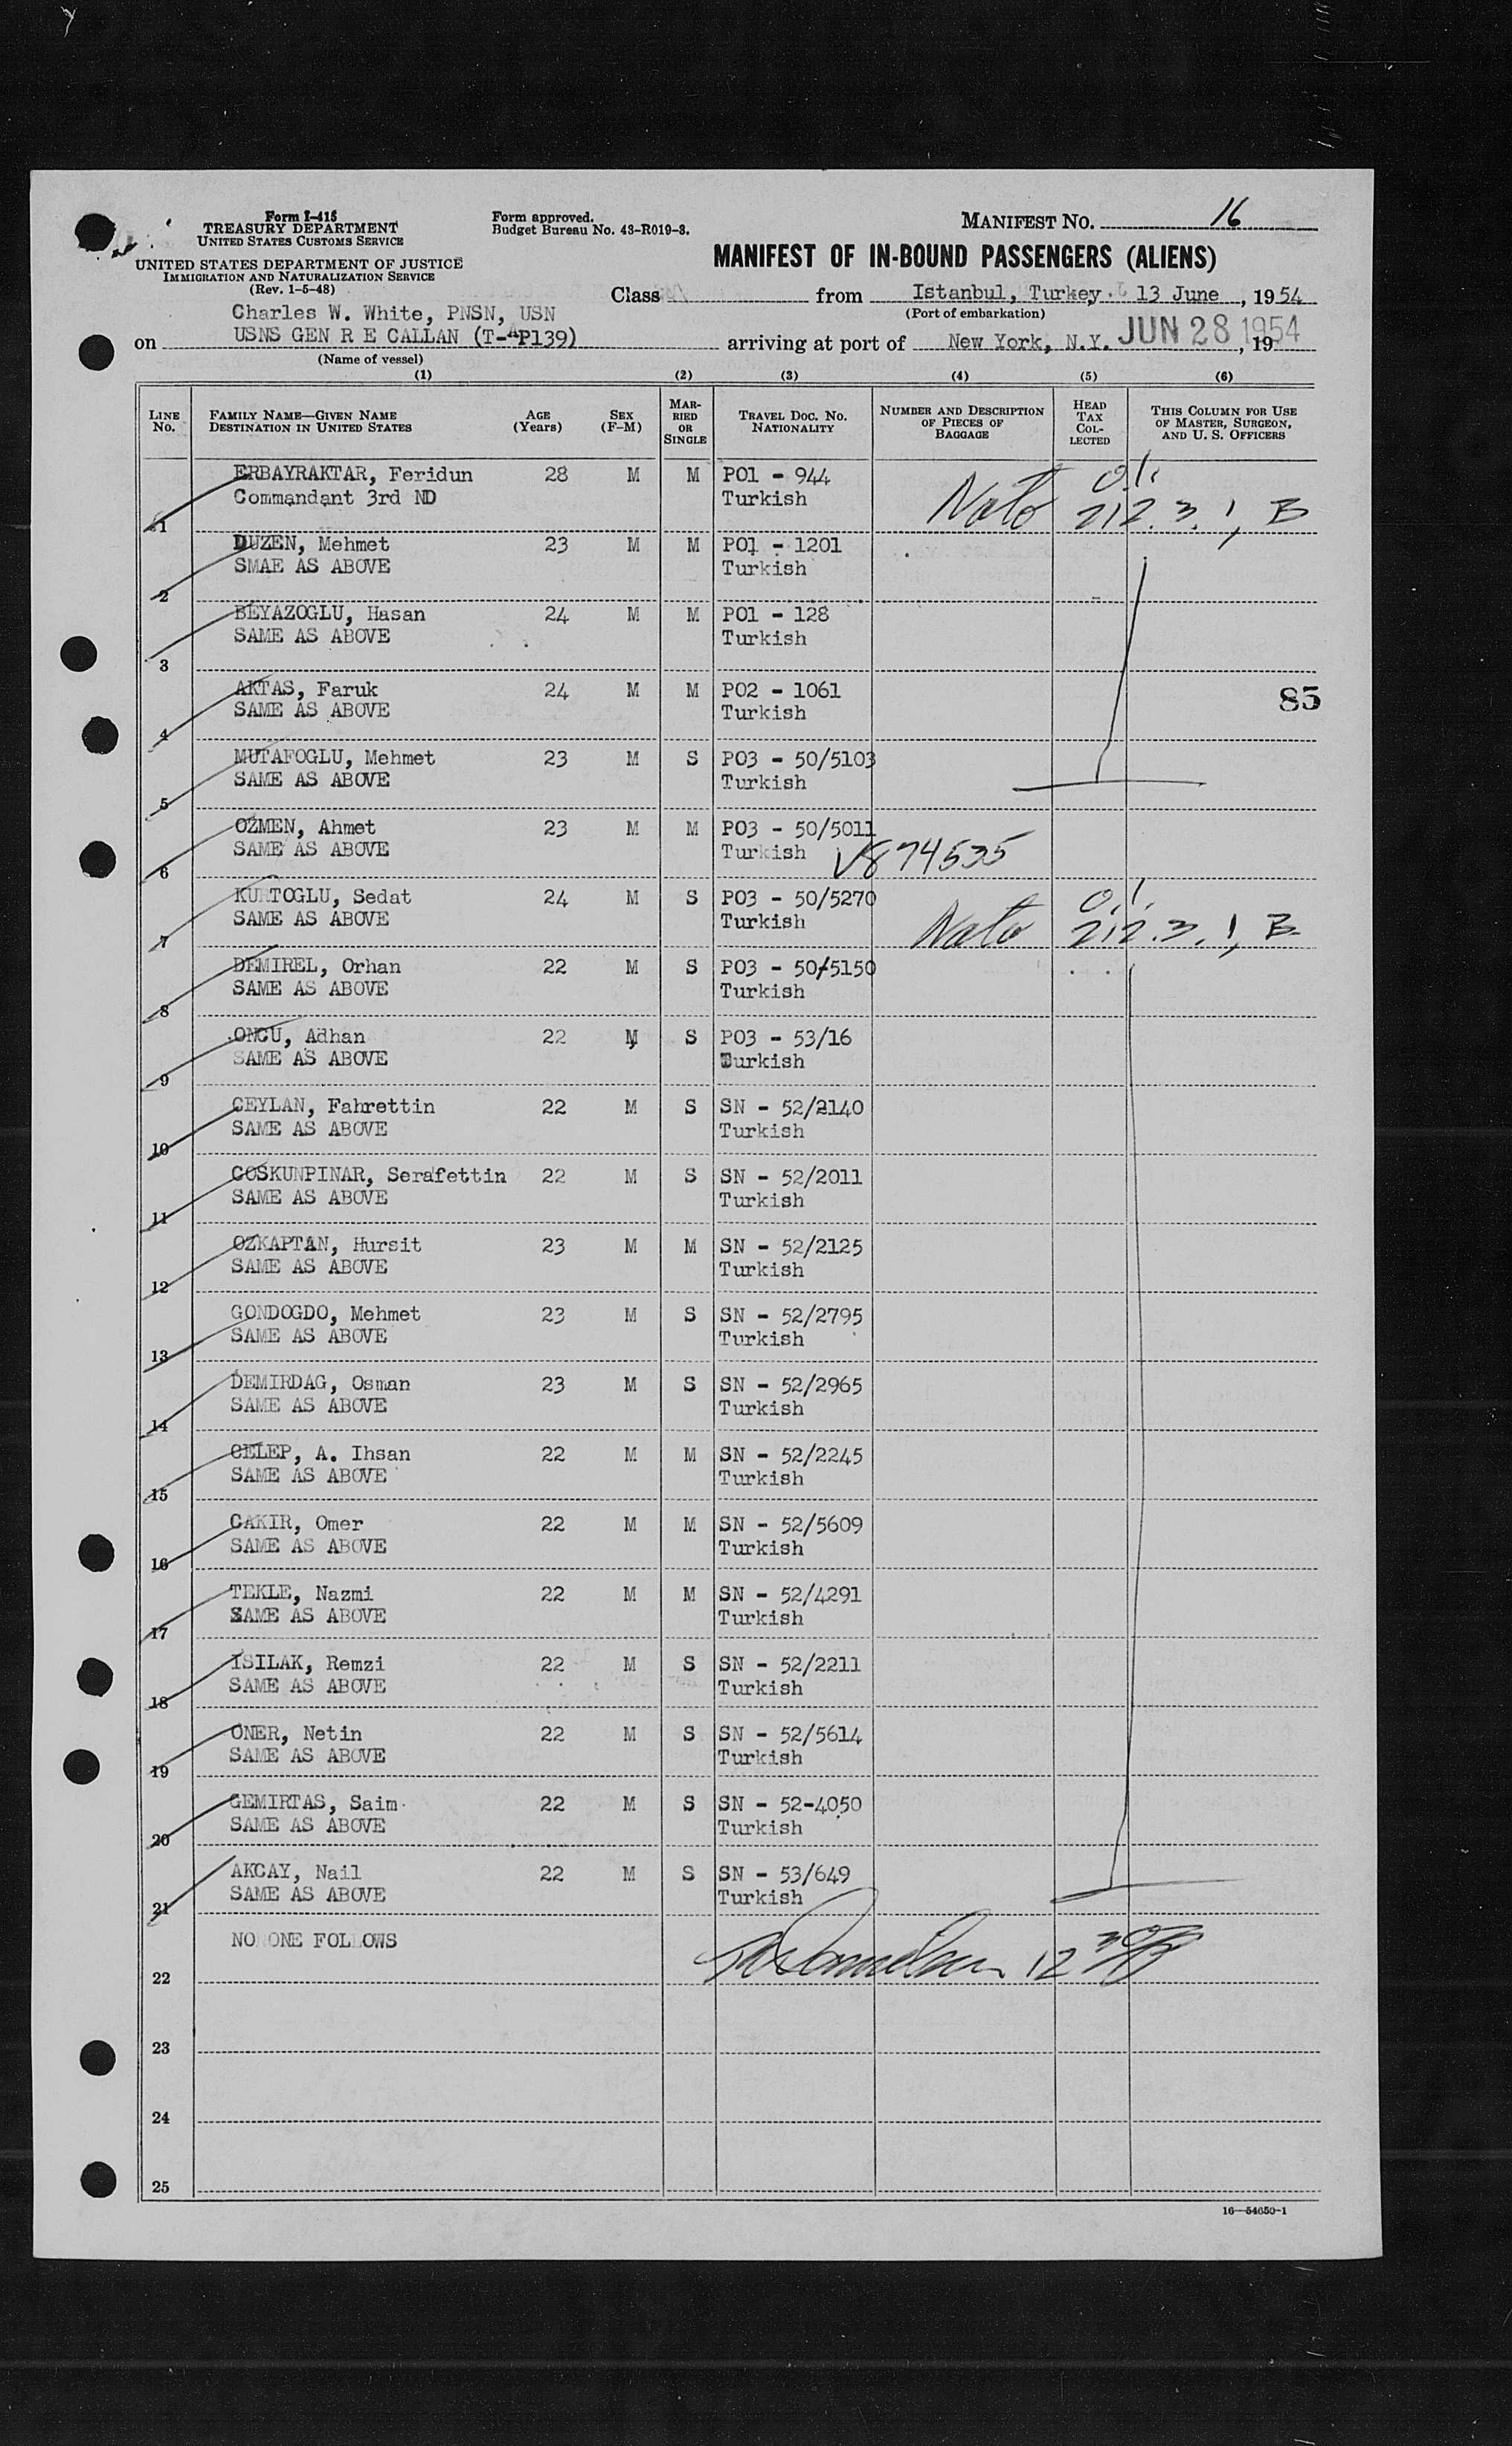 Form I-415
TREASURY DEPARTMENT
UNITED STATES CUSTOMS SERVICE
UNITED STATES DEPARTMENT OF JUSTICE
IMMIGRATION AND NATURALIZATION SERVICE
(Rev. 1-5-48)
Form approved.
Budget Bureau No. 43-R019-3.
MANIFEST NO. 16
MANIFEST OF IN-BOUND PASSENGERS (ALIENS)
Class from Istanbul, Turkey. 13 June, 1954
(Port of embarkation)
Charles W. White, PNSN, USN
on USNS GEN R E CALLAN (T-AP139) arriving at port of New York, N.Y. JUN 28 1954, 19
(Name of vessel)
(1) (2) (3) (4) (5) (6)
LINE No. FAMILY NAME—GIVEN NAME DESTINATION IN UNITED STATES AGE (Years) SEX (F-M) MARRIED OR SINGLE TRAVEL DOC. NO. NATIONALITY NUMBER AND DESCRIPTION OF PIECES OF BAGGAGE HEAD TAX COLLECTED THIS COLUMN FOR USE OF MASTER, SURGEON, AND U. S. OFFICERS
ERBAYRAKTAR, Feridun 28 M M PO1 - 944
1 Commandant 3rd ND Turkish Nato 212.3.1, B
DUZEN, Mehmet 23 M M PO1 - 1201
2 SMAE AS ABOVE Turkish
BEYAZOGLU, Hasan 24 M M PO1 - 128
3 SAME AS ABOVE Turkish
AKTAS, Faruk 24 M M PO2 - 1061 85
4 SAME AS ABOVE Turkish
MUTAFOGLU, Mehmet 23 M S PO3 - 50/5103
5 SAME AS ABOVE Turkish
OZMEN, Ahmet 23 M M PO3 - 50/5011
6 SAME AS ABOVE Turkish V874535
KURTOGLU, Sedat 24 M S PO3 - 50/5270
7 SAME AS ABOVE Turkish Nato 212.3.1, B
DEMIREL, Orhan 22 M S PO3 - 50/5150
8 SAME AS ABOVE Turkish
ONCU, Adhan 22 M S PO3 - 53/16
9 SAME AS ABOVE Turkish
CEYLAN, Fahrettin 22 M S SN - 52/2140
10 SAME AS ABOVE Turkish
COSKUNPINAR, Serafettin 22 M S SN - 52/2011
11 SAME AS ABOVE Turkish
OZKAPTAN, Hursit 23 M M SN - 52/2125
12 SAME AS ABOVE Turkish
GONDOGDO, Mehmet 23 M S SN - 52/2795
13 SAME AS ABOVE Turkish
DEMIRDAG, Osman 23 M S SN - 52/2965
14 SAME AS ABOVE Turkish
CELEP, A. Ihsan 22 M M SN - 52/2245
15 SAME AS ABOVE Turkish
CAKIR, Omer 22 M M SN - 52/5609
16 SAME AS ABOVE Turkish
TEKLE, Nazmi 22 M M SN - 52/4291
17 SAME AS ABOVE Turkish
ISILAK, Remzi 22 M S SN - 52/2211
18 SAME AS ABOVE Turkish
ONER, Netin 22 M S SN - 52/5614
19 SAME AS ABOVE Turkish
GEMIRTAS, Saim 22 M S SN - 52-4050
20 SAME AS ABOVE Turkish
AKCAY, Nail 22 M S SN - 53/649
21 SAME AS ABOVE Turkish
NO ONE FOLLOWS
22
23
24
25
16—54650-1